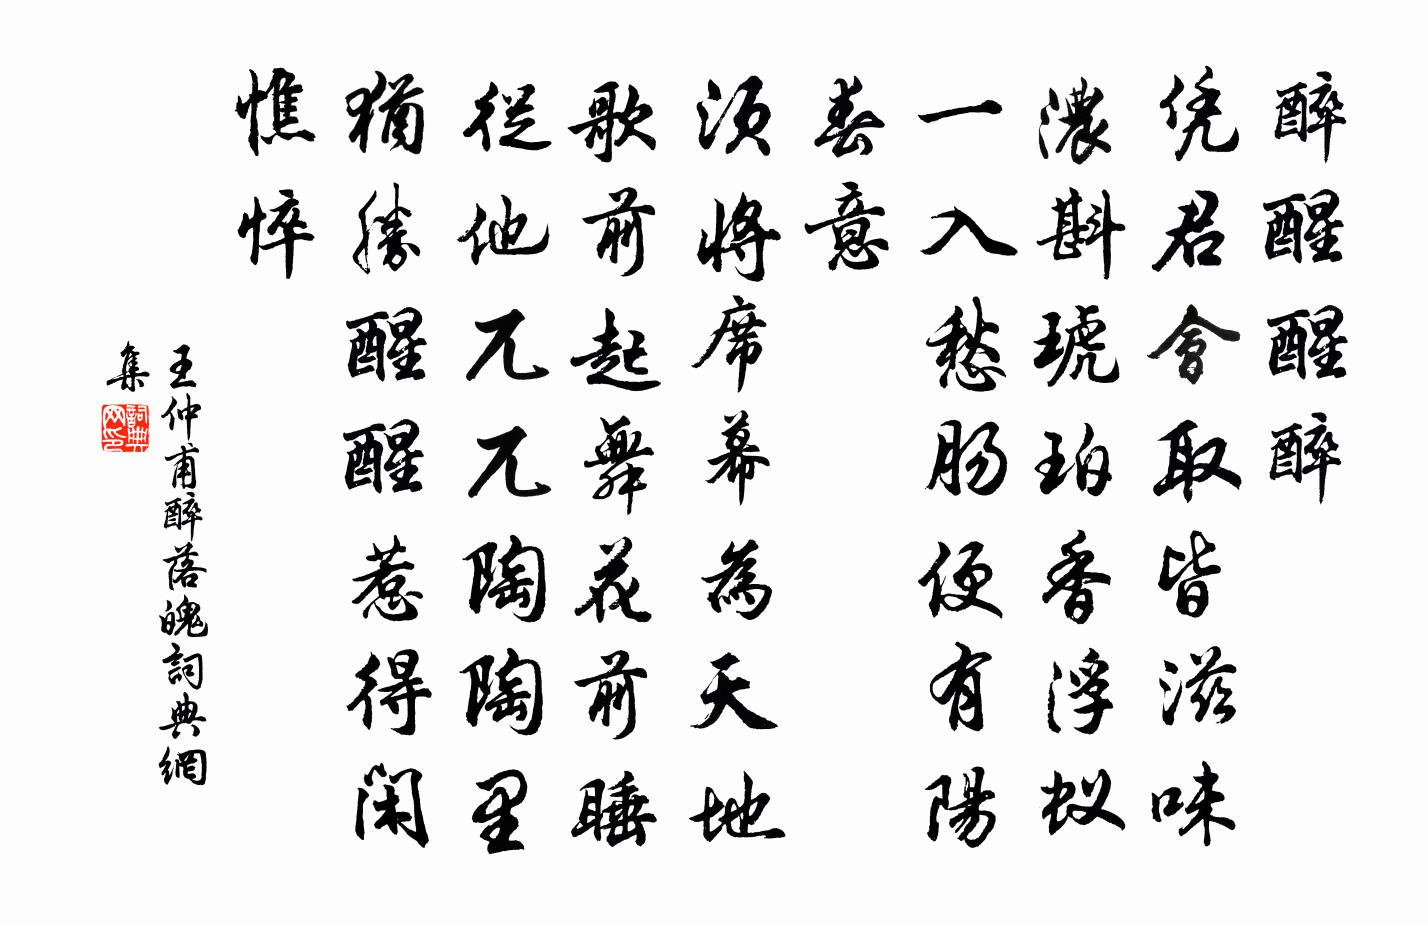 醉醒醒醉
凭君會取皆滋味
濃斟琥珀香浮蚁
一入愁肠便有陽
春意
須将席幕為天地
歌前起舞花前睡
從他兀兀陶陶里
猶勝醒醒惹得闲
憔悴
王仲甫醉落魄詞典網
集
詞典
网印